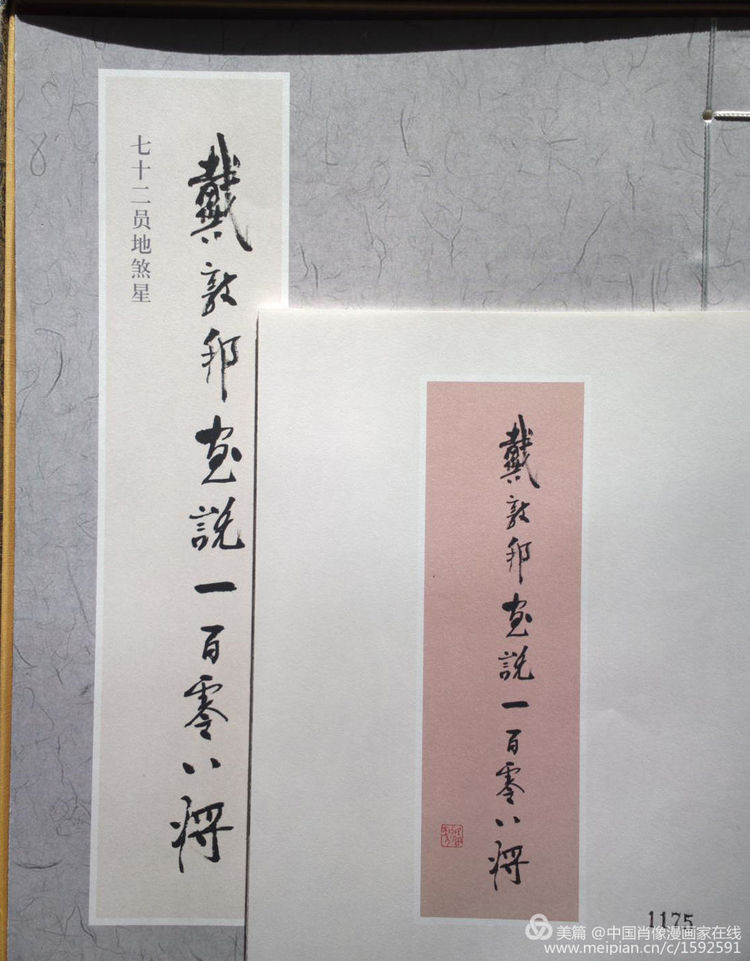 七十二员地煞星
戴敦邦画説一百零八将
戴敦邦画説一百零八将
1175
美篇 @中国肖像漫画家在线
www.meipian.cn/c/1592591